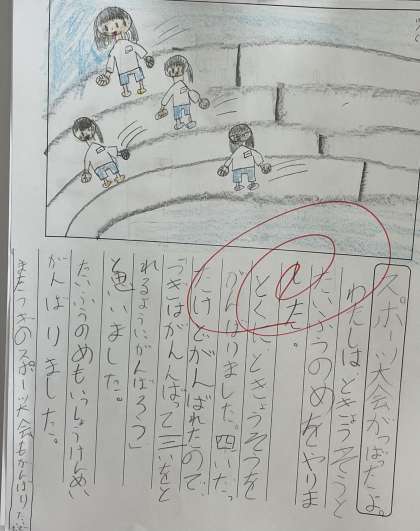 スポーツ大会がっばったよ。
わたしは、ときょうそうと
たいふうのめをやりま
した。
とくに、ときょうそうを
がんばりました。四いだっ
たけどがんばれたので
つぎはがんんばって三いをと
れるようにがんばろう」
と思いました。
たいふうのめもいっしょうけんめい
がんばりました。
またつぎのスポーツ大会もがんばりたい